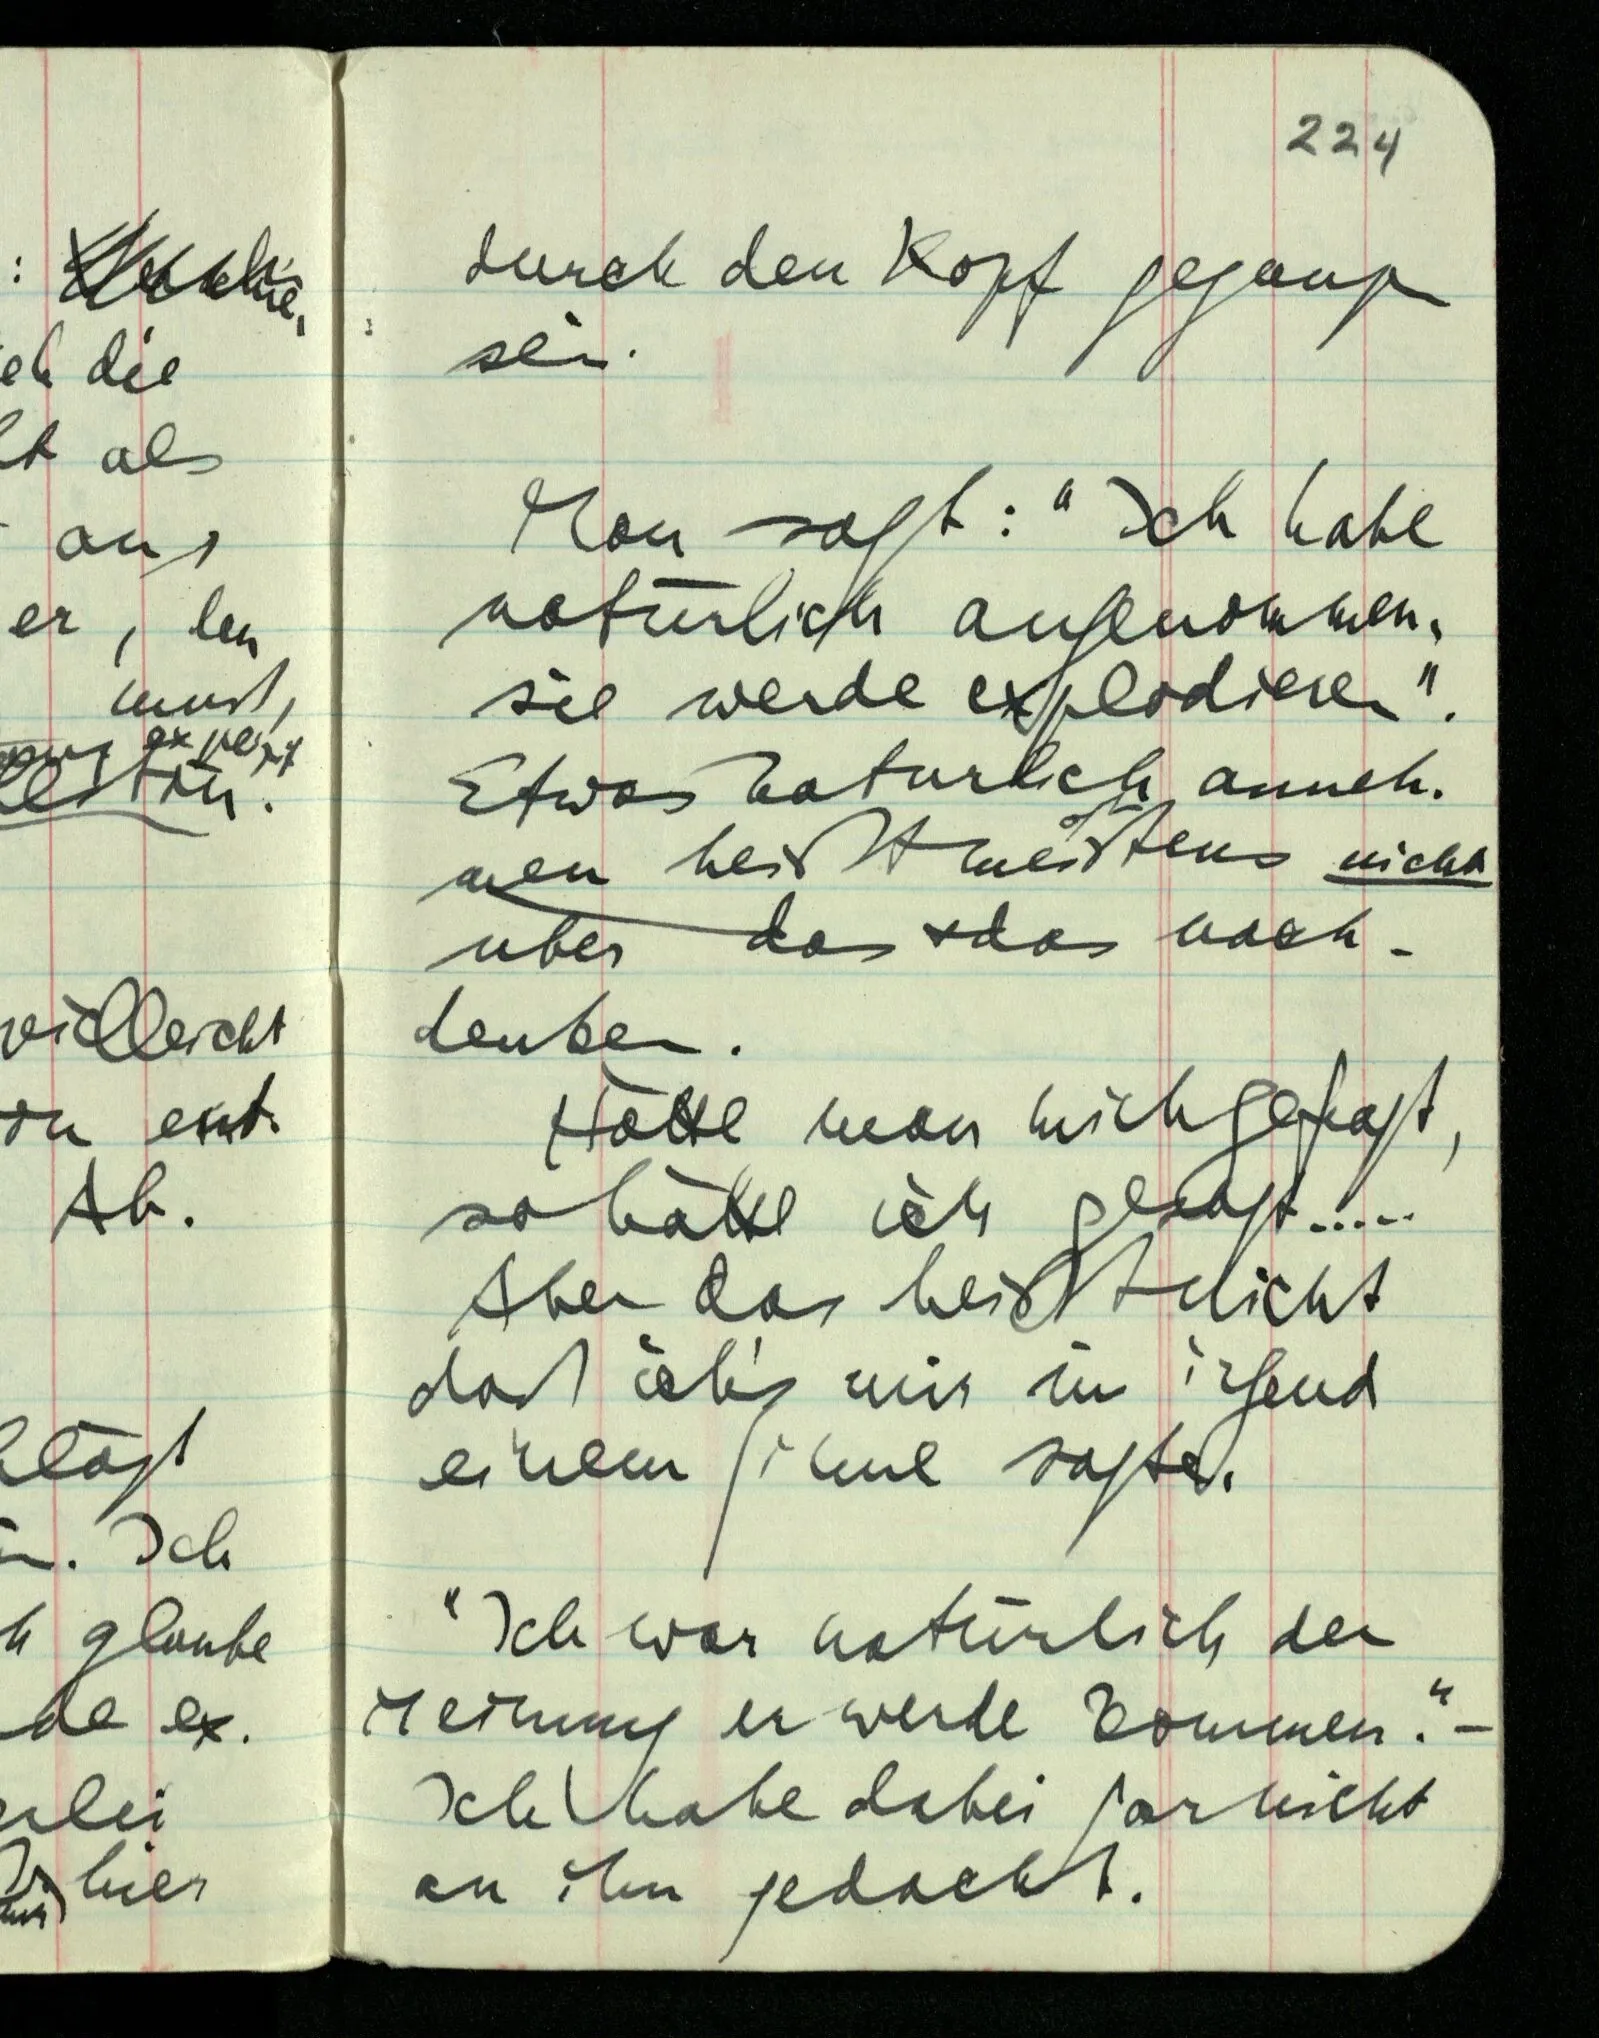 224
: 
die
als
aus
er, den
must,
experi

vielleicht
ent-
Ah.

Ich
glaube
de ex-
erlei
hier
durch den Kopf gegangen
sein.
Man sagt: "Ich habe
natürlich angenommen,
sie werde explodieren".
Etwas natürlich anneh-
men heißt meistens nicht
über das & das nach-
denken.
Hätte man mich gefragt,
so hätte ich gesagt.....
Aber das heißt nicht
daß ich's mir in irgend
einem Sinne sagte.
"Ich war natürlich der
Meinung er werde kommen." –
Ich habe dabei garnicht
an ihn gedacht.